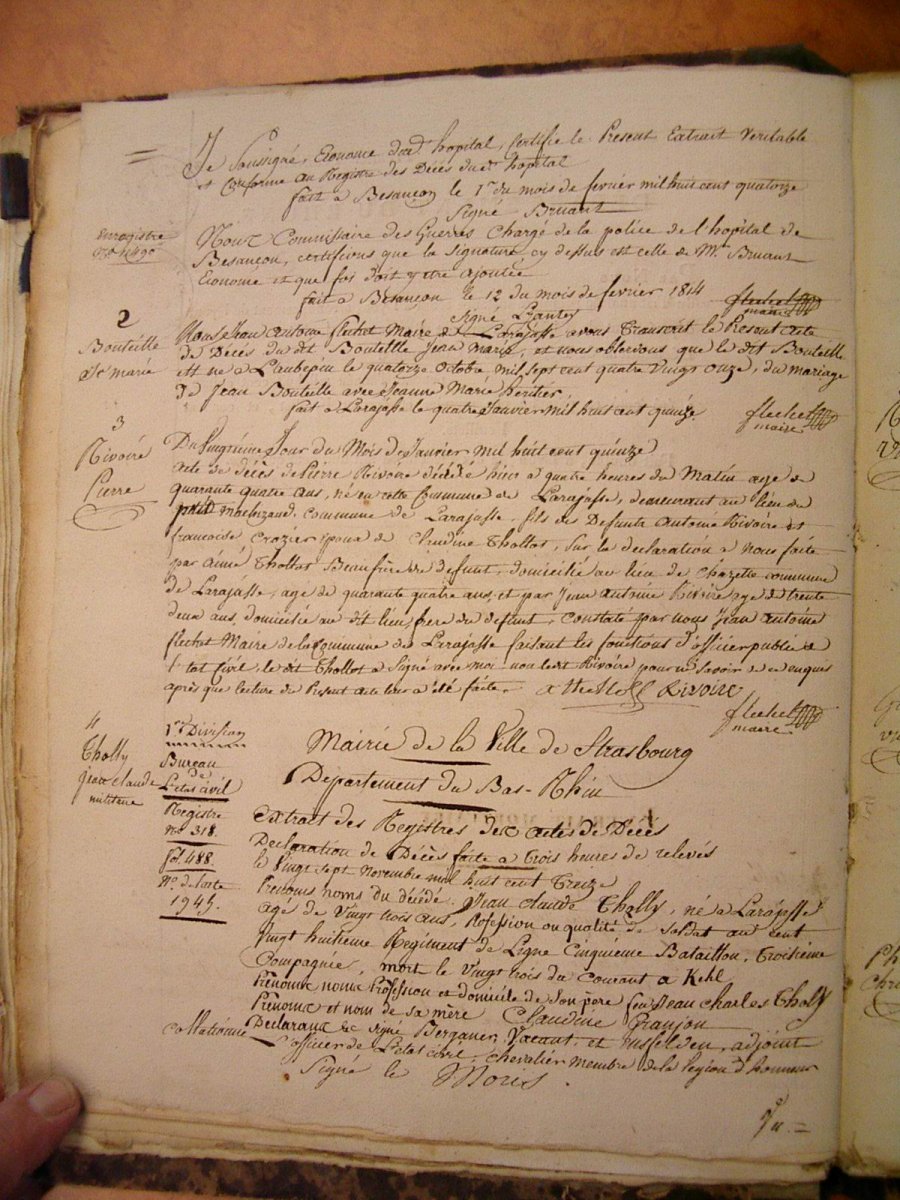 Je Soussigné, Econome dud. hopital, Certifie le Present Extrait Veritable
et Conforme au Registre des Décès dudt. hopital
fait a Besançon le 1er du mois de fevrier mil huit cent quatorze
Signé Bruant
Enregistré
No 1490
Nous Commissaire des Guerres Chargé de la police de l'hopital de
Besançon, certifions que la Signature, cy dessus est celle de Mr. Bruant
Econome et que foi doit y etre ajoutée
fait à Besançon le 12 du mois de fevrier 1814
Signé
flechet
maire
2
Bouteille
Jn marie
Nous Jean antoine flechet Maire de Larajasse avons Transcrit le Present acte
de Décès du dit Bouteille Jean Marie, et nous observons que le dit Bouteille
est né a Laubepin le quatorze Octobre mil sept cent quatre Vingt onze, du mariage
de Jean Bouteille avec Jeanne Marie heritier
fait a Larajasse le quatre Janvier mil huit cent quinze
flechet
maire
3
Rivoiré
Pierre
Du Jour du Mois de Janvier mil huit cent quinze
acte de décès de Pierre Rivoire décédé hier a quatre heures du Matin age de
quarante quatre ans, né en cette Commune de Larajasse, demeurant au lieu de
petit commune de Larajasse, fils des Defunts Antoine Rivoire et
francoise Crozier epoux de Claudine Thollot, Sur la declaration a nous faite
par aimé Thollot Beaufrère du defunt, domicilié au lieu de chazette commune
de Larajasse, age de quarante quatre ans, et par Jean Antoine Rivoire age de trente
deux ans, domicilié au dit lieu, frere du defunt, Constaté par nous Jean Antoine
flechet Maire de la Commune de Larajasse faisant les fonctions d'officier public de
l'etat Civil, le dit Thollot a Signé avec moi non ledit Rivoire pour ne Savoir de ce enquis
après que lecture du Present acte leur a été faite. Rivoire
flechet
maire
4
Tholly
jean claude
militaire
1re Division
Bureau
de
L'etat civil
Registre
no 318.
fol. 488.
No. de l'acte
1945.
Mairie de la Ville de Strasbourg
Département du Bas-Rhin
Extrait des Registres des actes de Décès
Declaration de Décès faite a Trois heures de relevés
le Vingt sept Novembre mil huit cent Treize
Prenoms noms du décédé. Jean Claude Tholly, né a Larajasse
agé de Vingt trois ans, Profession ou qualité de Soldat au cent
Vingt huitieme Regiment de Ligne Cinquieme Bataillon, Troisieme
Compagnie, mort le Vingt trois du Courant a Kehl
Prenoms noms Profession et domicile de Son père feu Jean Charles Tholly
Prenoms et nom de sa mère Claudine Granjon
Collationné
Declarants Signé Berganer, Vacant, et adjoint
officier de L'etat civil, Chevalier membre de la légion d'honneur
Signé le Moris.